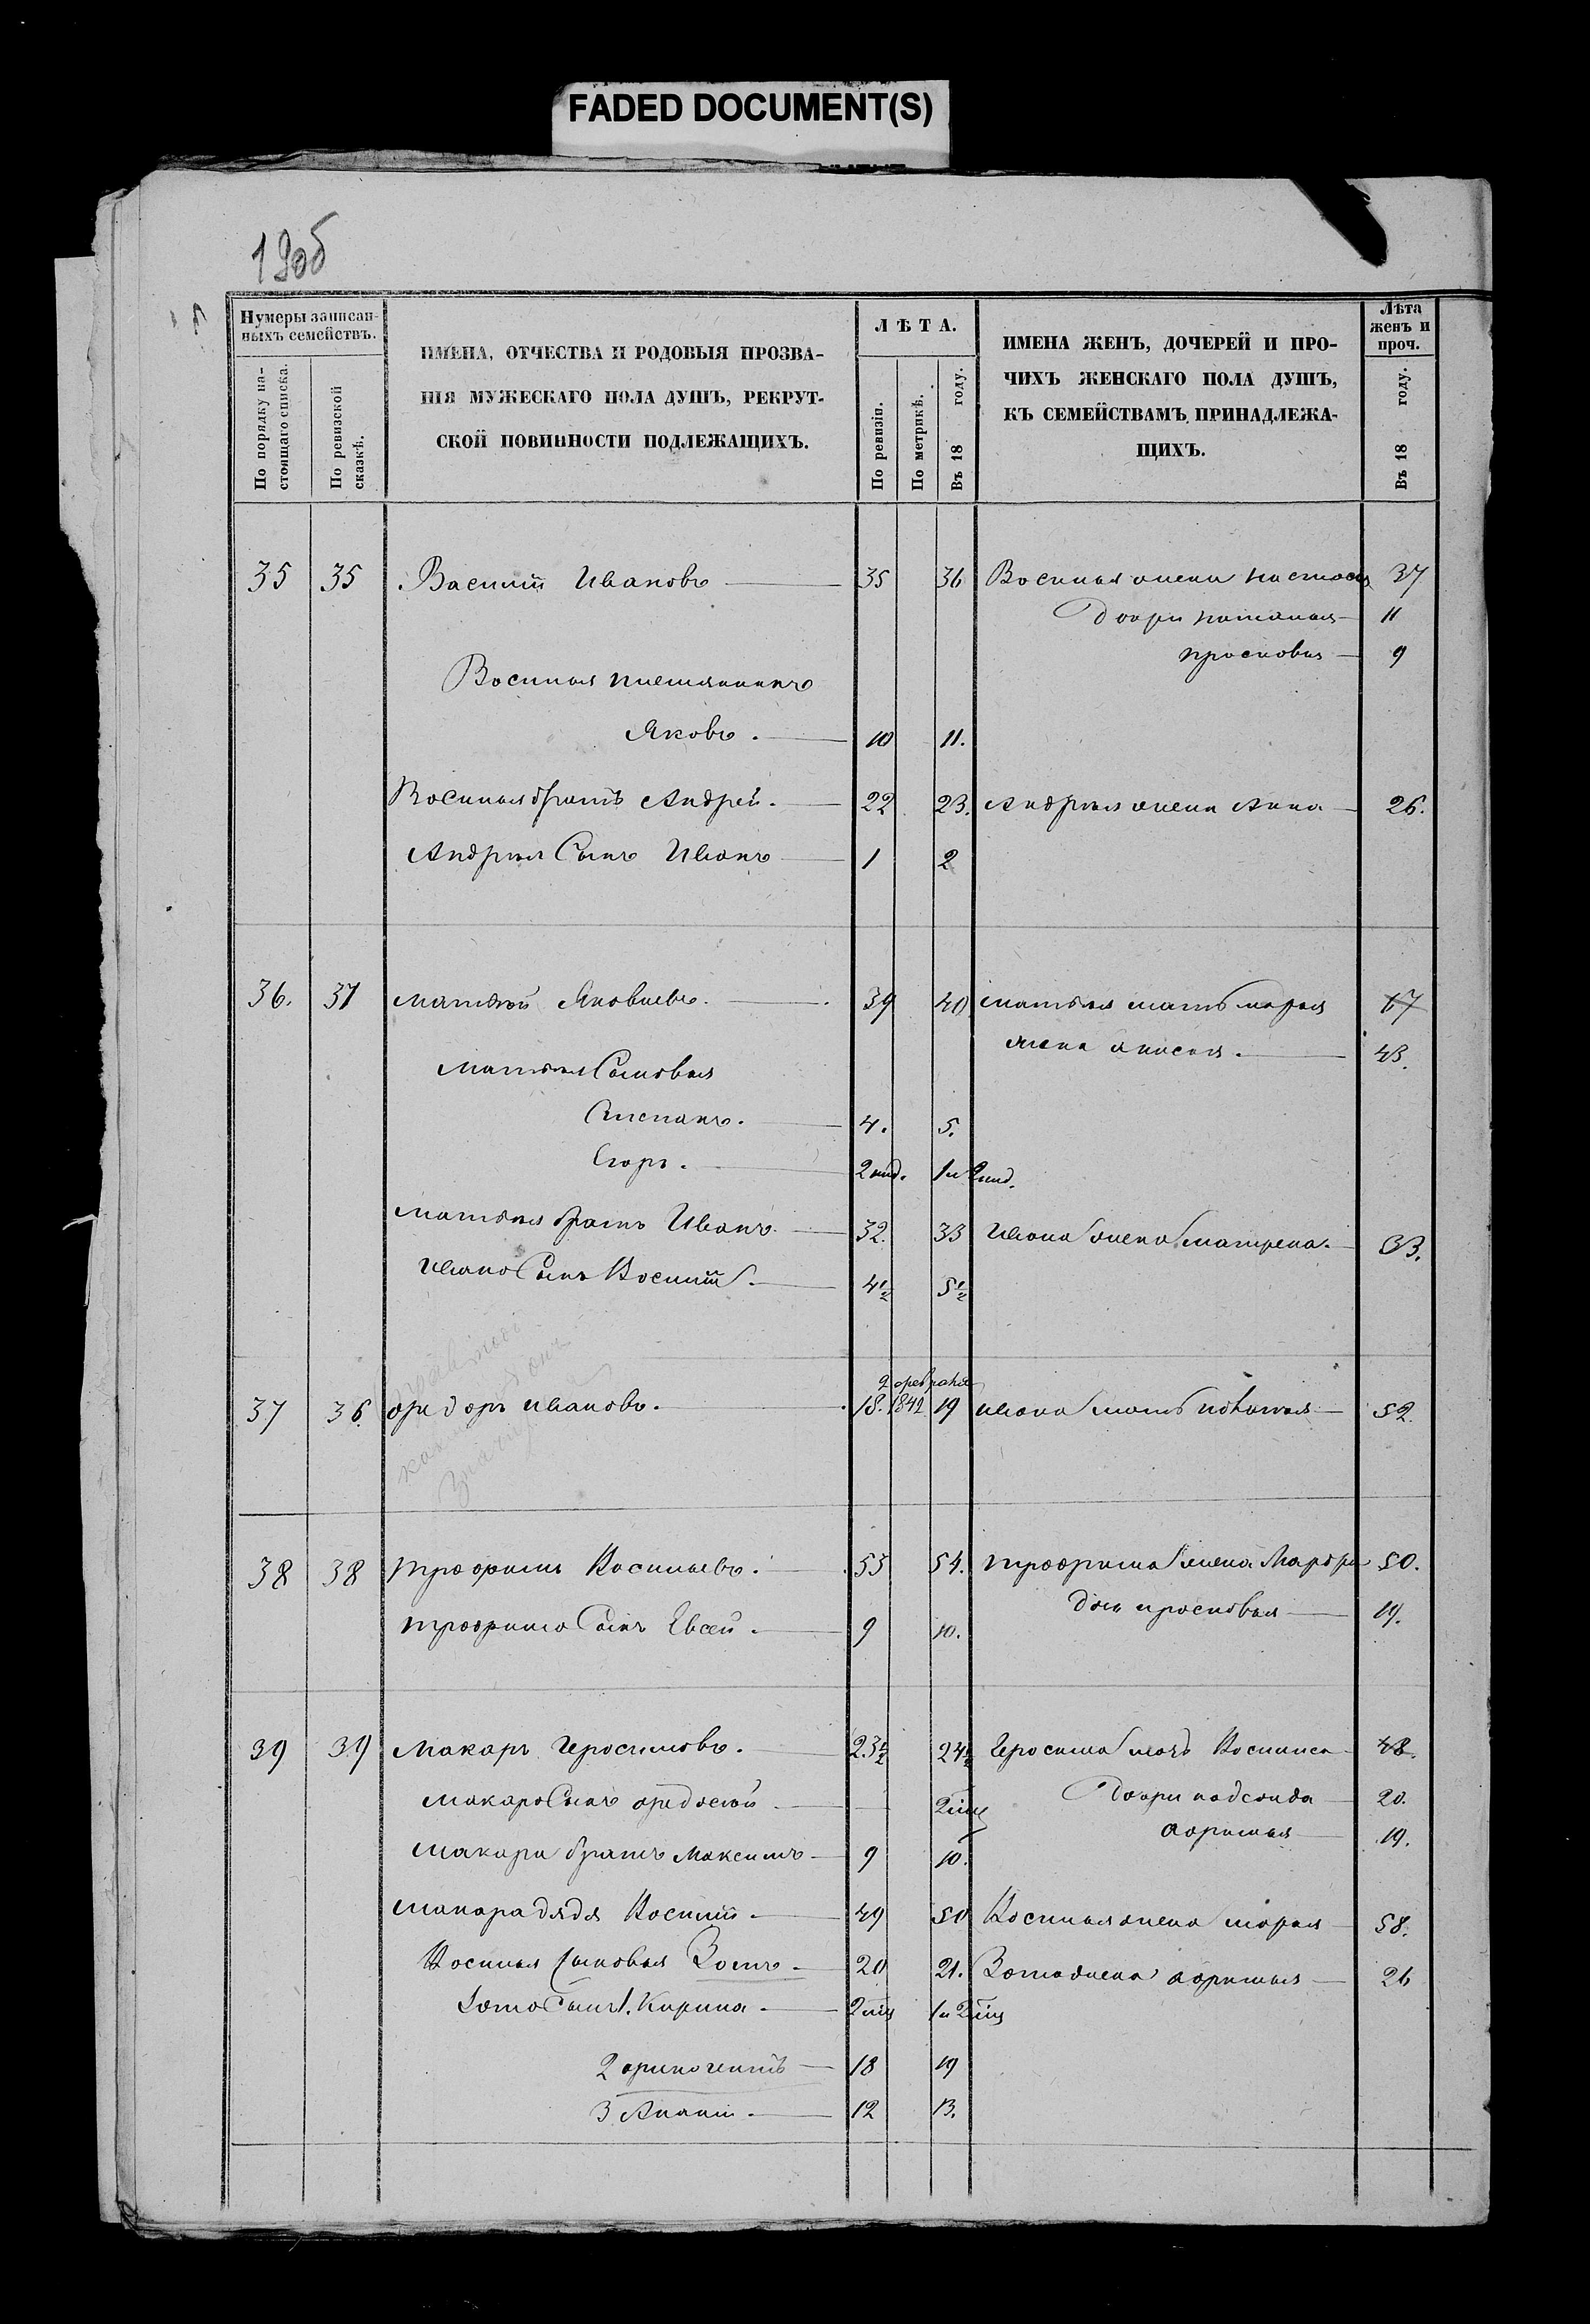 FADED DOCUMENT(S)
19об
Нумеры записан-
ныхъ семействъ.
По порядку на-
стоящаго списка.
По ревизской
сказкѣ.
ИМЕНА, ОТЧЕСТВА И РОДОВЫЯ ПРОЗВА-
НІЯ МУЖЕСКАГО ПОЛА ДУШЪ, РЕКРУТ-
СКОЙ ПОВИННОСТИ ПОДЛЕЖАЩИХЪ.
ЛѢТА.
По ревизіи.
По метрикѣ.
Въ 18 году.
ИМЕНА ЖЕНЪ, ДОЧЕРЕЙ И ПРО-
ЧИХЪ ЖЕНСКАГО ПОЛА ДУШЪ,
КЪ СЕМЕЙСТВАМЪ ПРИНАДЛЕЖА-
ЩИХЪ.
Лѣта
женъ и
проч.
Въ 18 году.
35 35 Василій Ивановъ 35 36 Василья жена настася 37
дочри наталья 11
просковья 9
Василья племяникъ
Яковъ. 10 11.
Василья братъ Андрей. 22 23. Андрѣя жена Анна 26.
Андрѣя Сынъ Иванъ 1 2
36. 37 матвѣй Яковлевъ. 39 40 матвѣя мать марья 67
жена анисья. 43.
матвѣя Сыновья
Степанъ. 4. 5.
Егоръ. 2 нид. 1 и 2 нид.
матвѣя братъ Иванъ 32. 33 ивана жена матрена. 33.
ивана Сынъ Василій. 4½ 5½
2 февраля
37 36. федоръ ивановъ. 18. 1842 19 ивана мать 52
38 38 трофимъ Васильевъ. 53 54. трофима жена Марфа 50.
дочь просковья 19.
трофима Сынъ Евсей. 9 10.
39 39 макаръ Геросимовъ. 23½ 24½ Геросима мать Василиса 48.
макара Сынъ федосѣй 2 мѣц дочри 20.
афимья 19.
макара братъ максимъ 9 10.
макара дядя Василій. 49 50 Василья жена марья 58.
Василья Сыновья Зотъ. 20 21. Зота жена афимья 26
Зота Сынъ 1. Кирила. 2 мѣц 1 и 2 мѣц
2 18 19
3 Ананій. 12 13.